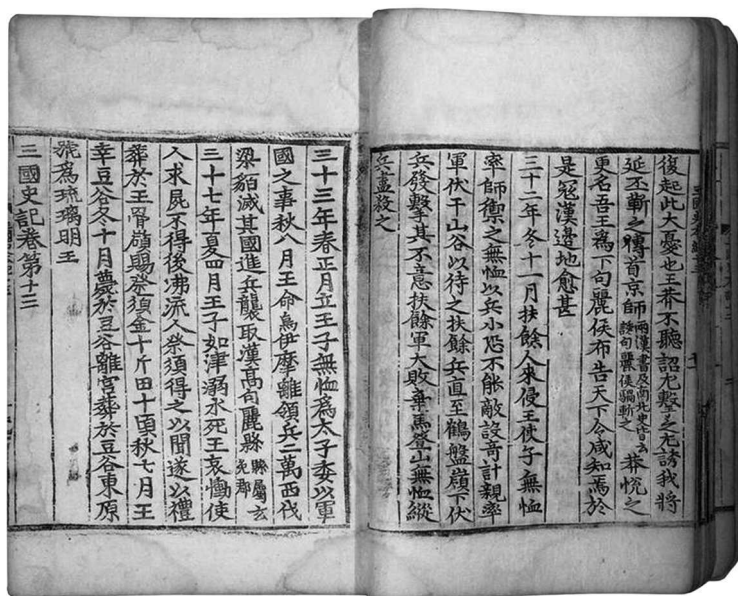 復起此大憂也王莽不聽詔尤擊之尤誘我將
延丕斬之傳首京師兩漢書及南北史皆云
誘句麗侯騶斬之莽悅之
更名吾王爲下句麗侯布告天下令咸知焉於
是寇漢邊地愈甚
三十二年冬十一月扶餘人來侵王使子無恤
率師禦之無恤以兵小恐不能敵設奇計親率
軍伏于山谷以待之扶餘兵直至鶴盤嶺下伏
兵發擊其不意扶餘軍大敗棄馬登山無恤縱
兵盡殺之
三十三年春正月立王子無恤爲太子委以軍
國之事秋八月王命烏伊摩離領兵二萬西伐
梁貊滅其國進兵襲取漢高句麗縣縣屬玄
免郡
三十七年夏四月王子如津溺水死王哀慟使
人求屍不得後沸流人祭須得之以聞遂以禮
葬於王骨嶺賜祭須金十斤田十頃秋七月王
幸豆谷冬十月薨於豆谷離宮葬於豆谷東原
號爲琉璃明王
三國史記卷第十三